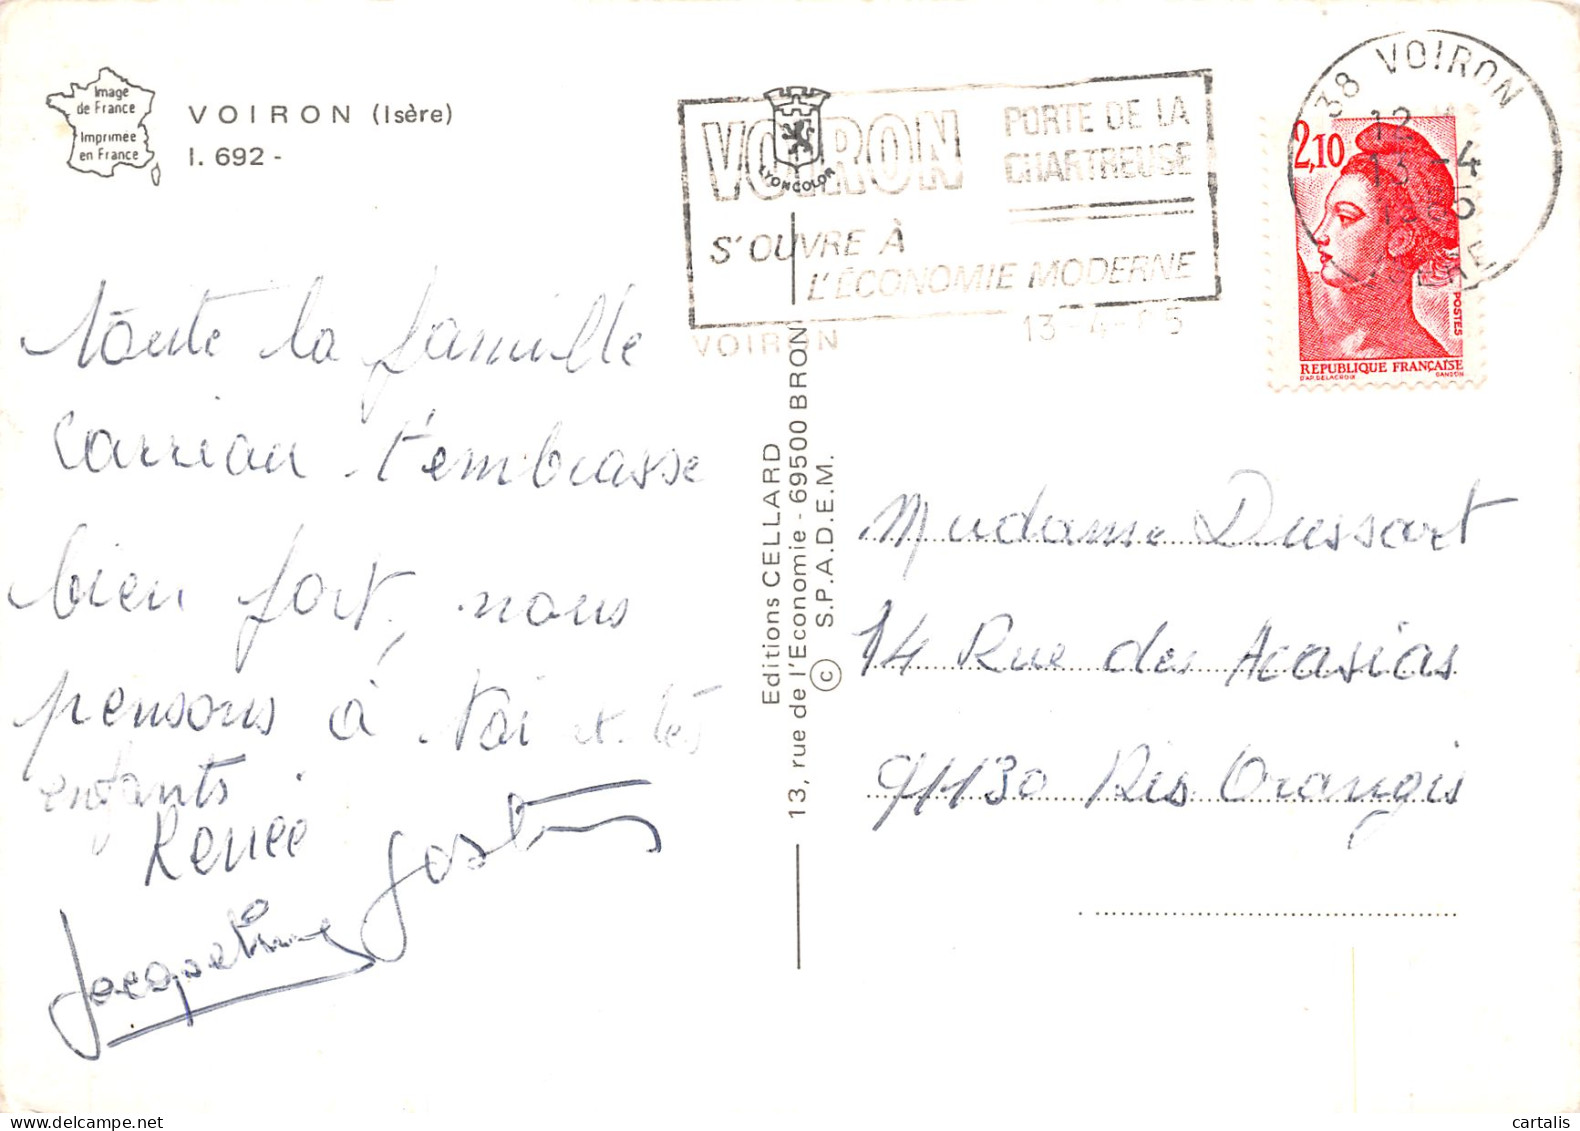 Image
de France
Imprimée
en France
VOIRON (Isère)
I. 692 -
Toute la famille
Carriau t'embrasse
bien fort, nous
pensons à toi et tes
enfants.
Renée
Jacqueline
Editions CELLARD
13, rue de l'Economie - 69500 BRON
© S.P.A.D.E.M.
LYONCOLOR
VOIRON PORTE DE LA
CHARTREUSE
S'OUVRE À
L'ÉCONOMIE MODERNE
VOIRON 13-4-
38 VOIRON
12
13 -4
ISERE
2,10
POSTES
REPUBLIQUE FRANÇAISE
D'AP. DELACROIX GANDON
Madame Dussart
14 Rue des Acasias
91130 Ris Orangis
cartalis